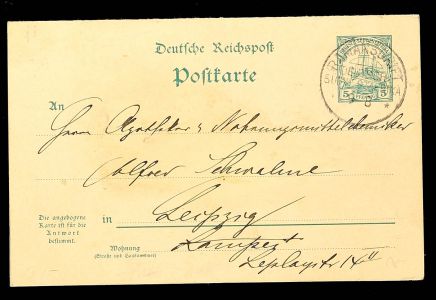 Deutsche Reichspost
Postkarte
An
Herrn Apotheker & Nahrungsmittelchemiker
Alfred Schwalme
Die angebogene
Karte ist für die
Antwort
bestimmt.
in Leipzig
Wohnung
(Straße und Hausnummer)
Leplaystr 14 II
5